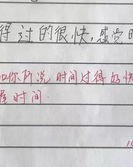 得过的很快,感觉
如你所说 时间过得好快
是时间.